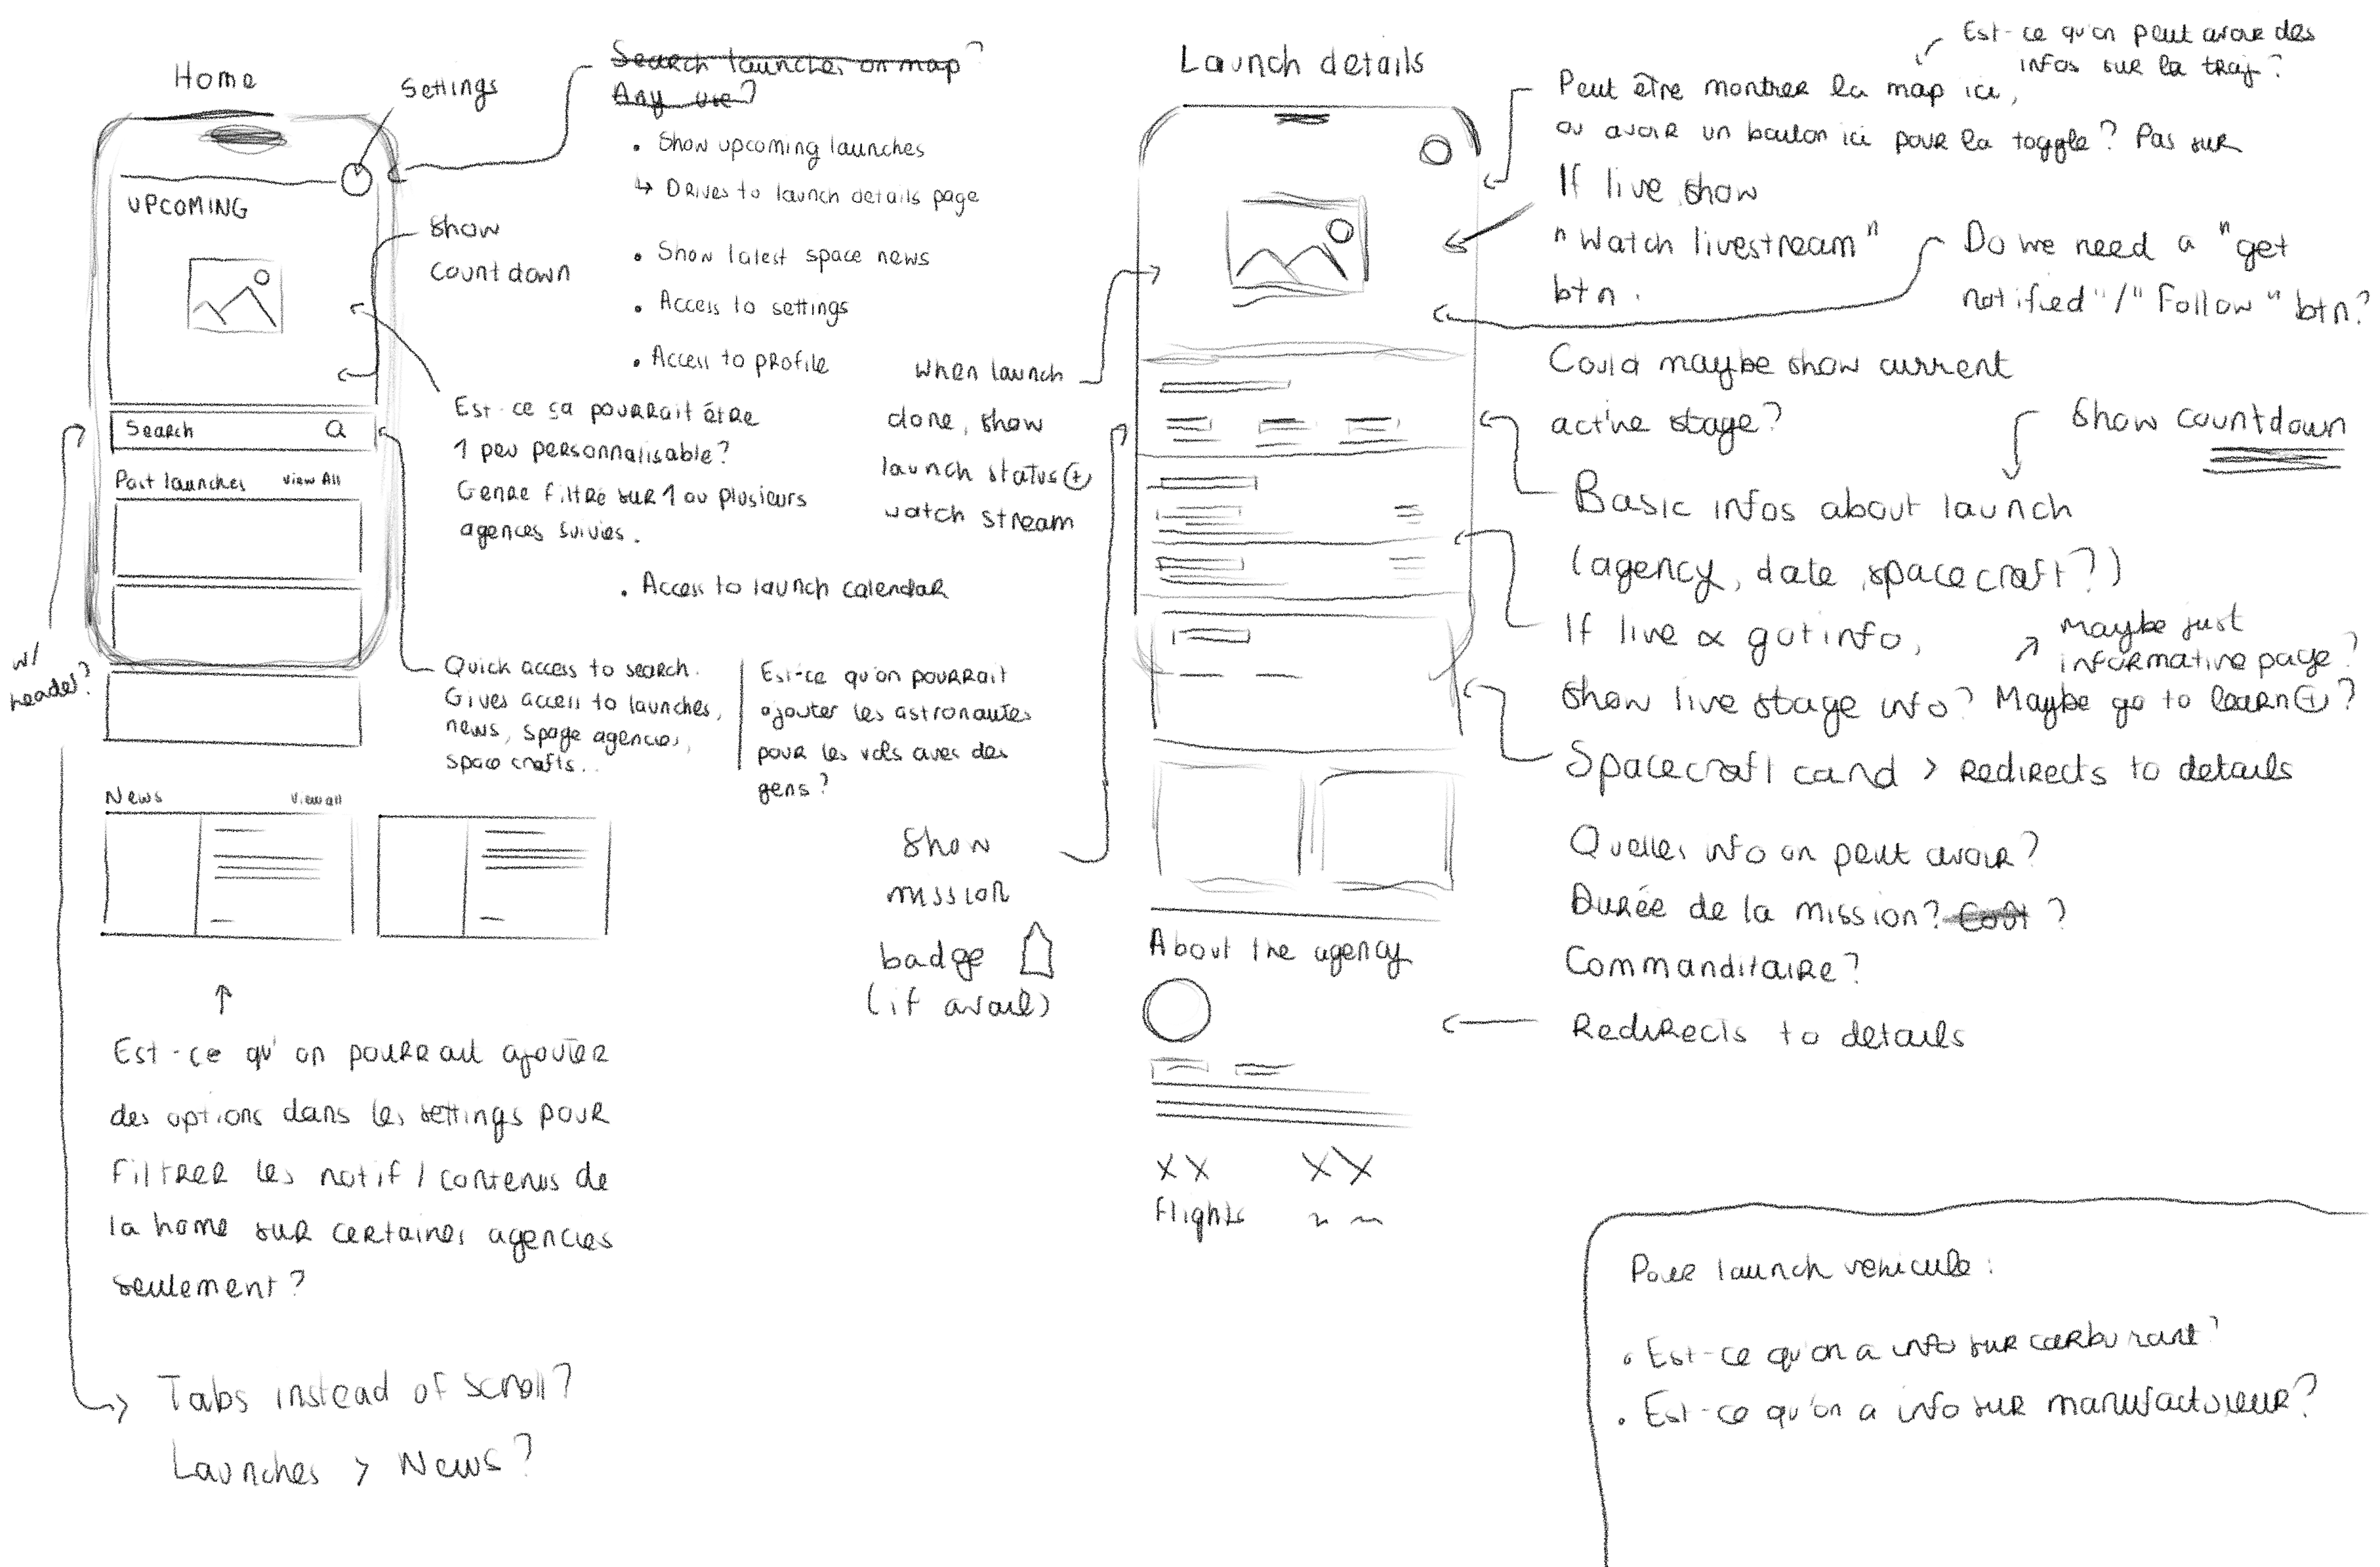 Home
Settings
UPCOMING
Search
Past launches View All
News View all
Search launches on map?
Any use?
• Show upcoming launches
↳ Drives to launch details page
• Show latest space news
• Access to settings
• Access to profile
Show
countdown
Est-ce ça pourrait être
1 peu personnalisable?
Genre filtré sur 1 ou plusieurs
agences suivies.
• Access to launch calendar
w/
header?
Quick access to search.
Gives access to launches,
news, spage agencies,
space crafts..
Est-ce qu'on pourrait
ajouter les astronautes
pour les vols avec des
gens?
Est-ce qu'on pourrait ajouter
des options dans les settings pour
filtrer les notif / contenus de
la home sur certaines agencies
seulement?
Tabs instead of scroll?
Launches > News?
Launch details
When launch
done, show
launch status +
watch stream
Show
mission
badge
(if avail)
About the agency
XX XX
flights
Est-ce qu'on peut avoir des
infos sur la traj?
Peut être montrer la map ici,
ou avoir un bouton ici pour la toggle? Pas sur
If live show
"Watch livestream"
btn.
Do we need a "get
notified"/"Follow" btn?
Could maybe show current
active stage?
Show countdown
Basic infos about launch
(agency, date, spacecraft?)
If live & got info,
show live stage info?
Maybe just
informative page?
Maybe go to learn +?
Spacecraft card > Redirects to details
Quelles info on peut avoir?
Durée de la mission? Coût ?
Commanditaire?
Redirects to details
Pour launch vehicule:
• Est-ce qu'on a info sur carburant?
• Est-ce qu'on a info sur manufactureur?